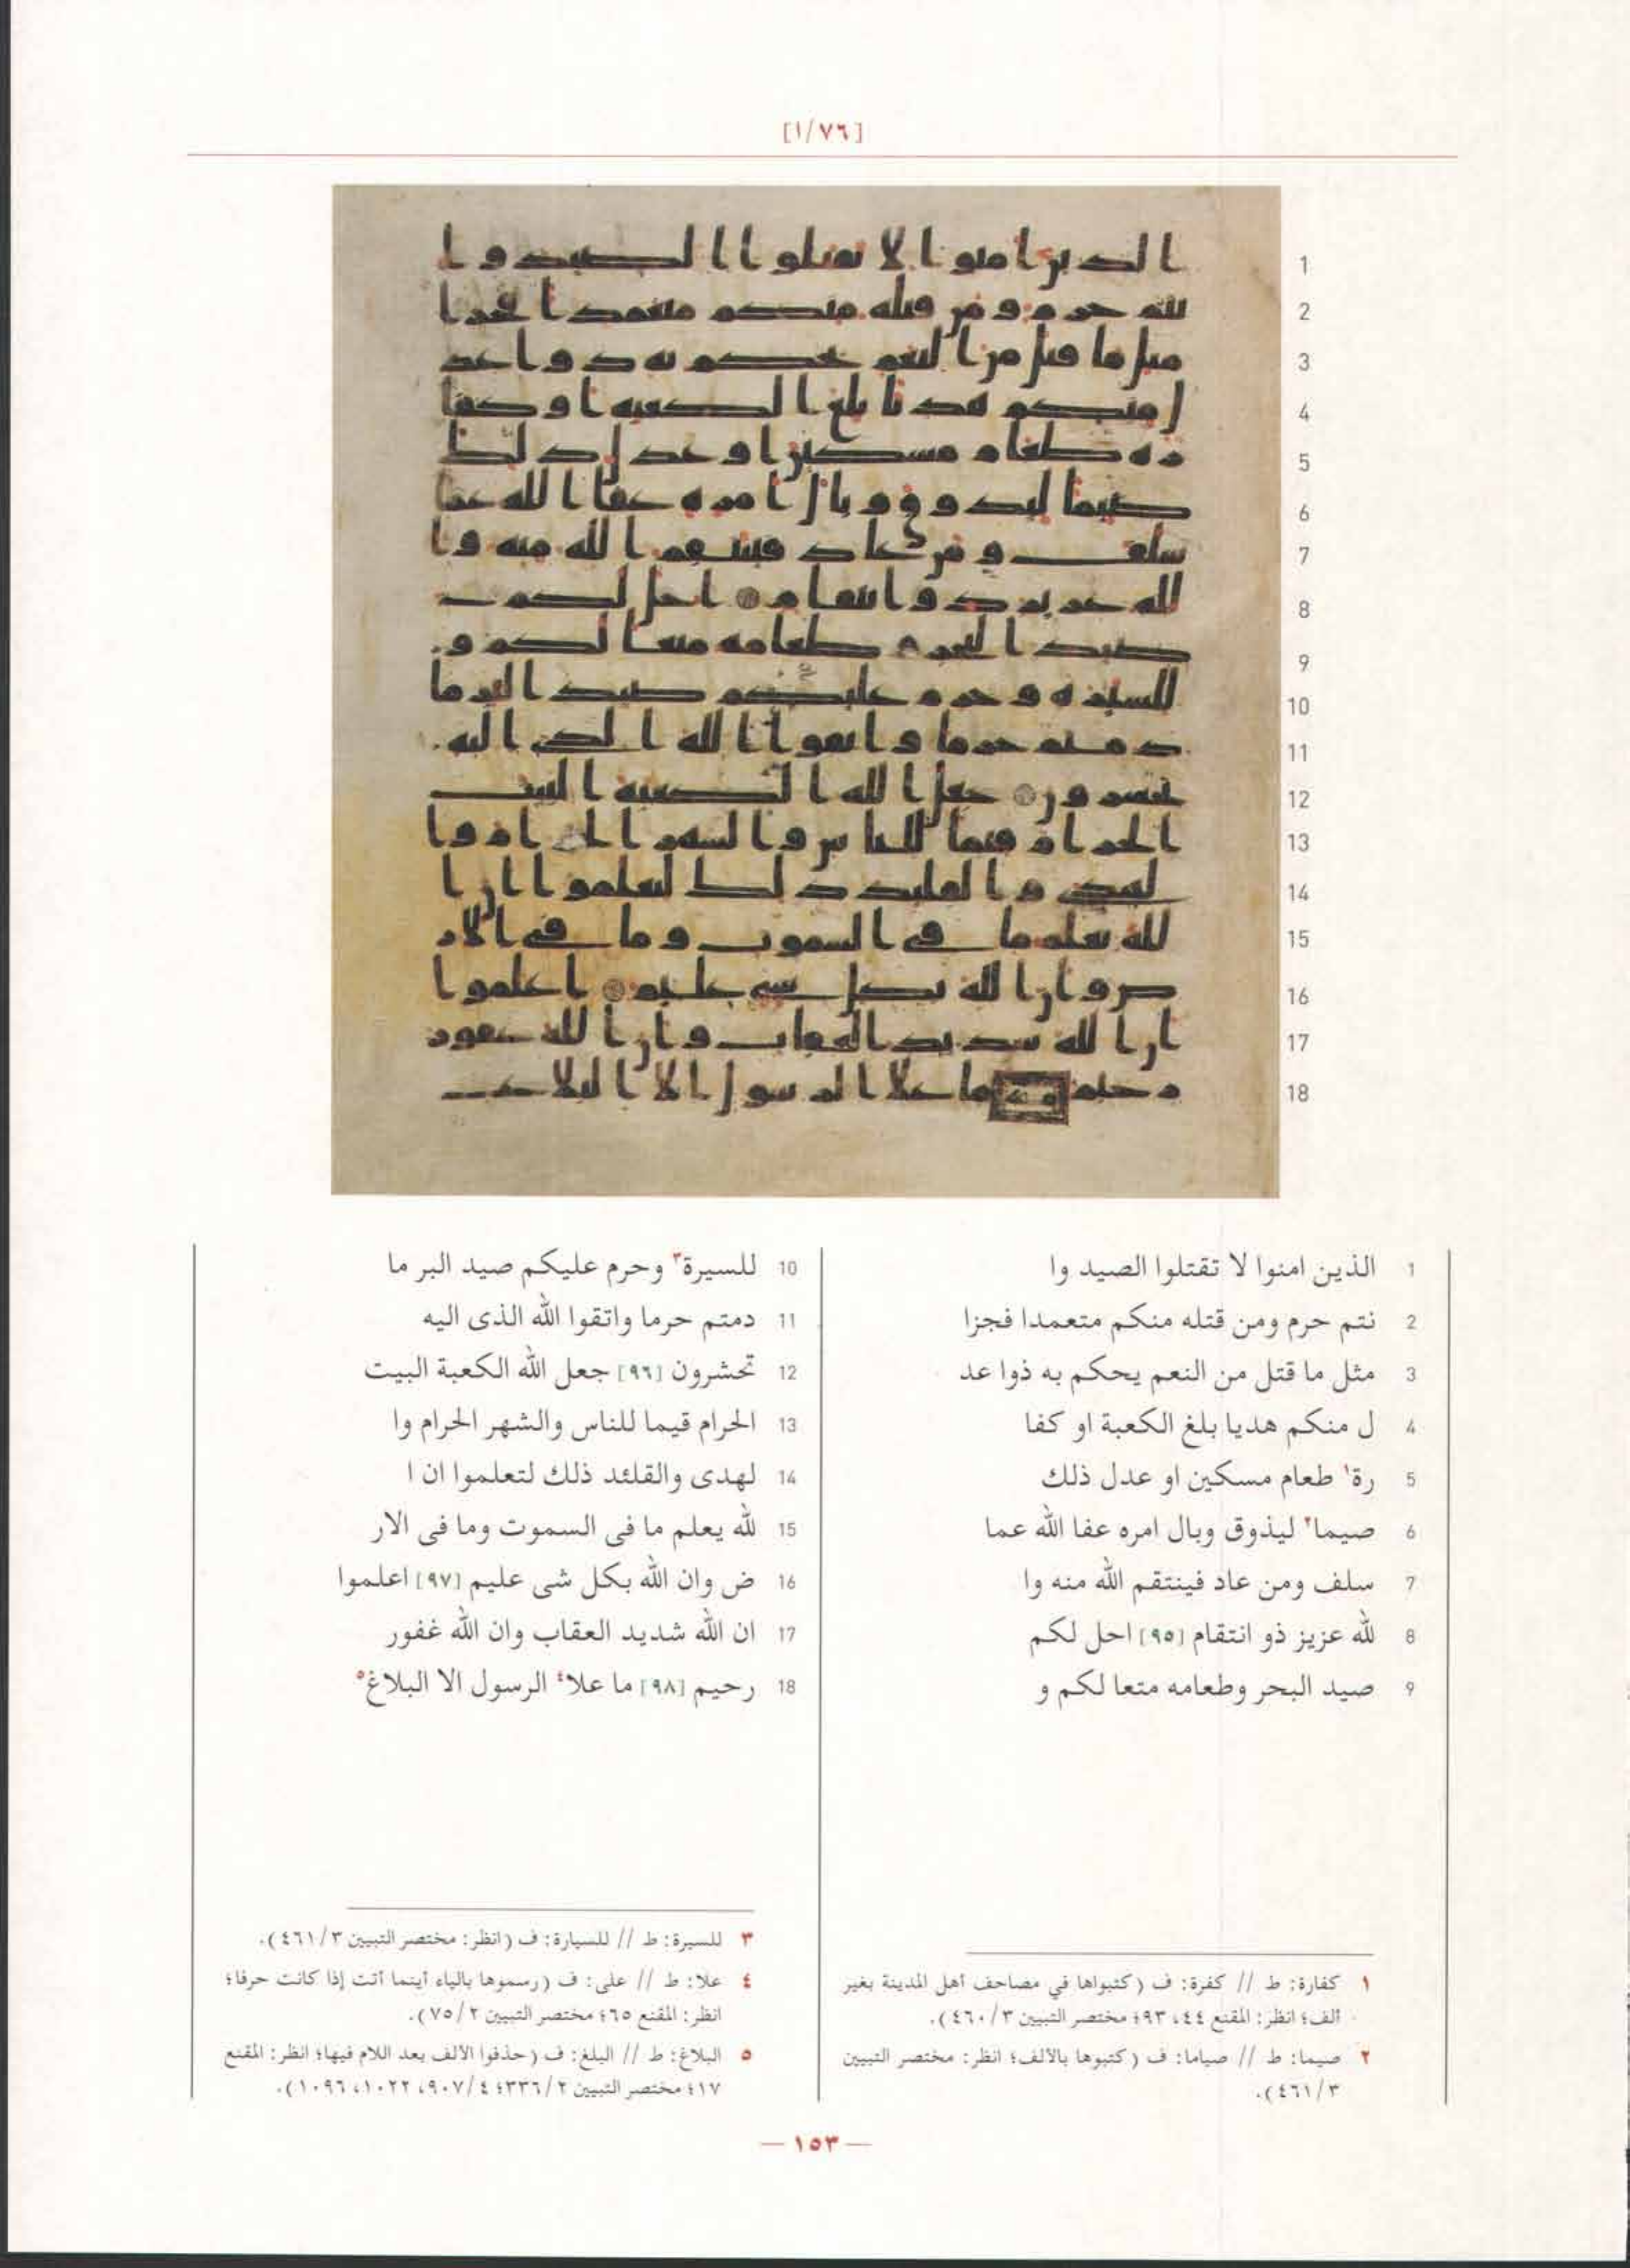 [١/٧٦]
1 الذين امنوا لا تقتلوا الصيد وا
2 نتم حرم ومن قتله منكم متعمدا فجزا
3 مثل ما قتل من النعم يحكم به ذوا عد
4 ل منكم هديا بلغ الكعبة او كفا
5 رة١ طعام مسكين او عدل ذلك
6 صيما٢ ليذوق وبال امره عفا الله عما
7 سلف ومن عاد فينتقم الله منه وا
8 لله عزيز ذو انتقام [٩٥] احل لكم
9 صيد البحر وطعامه متعا لكم و
10 للسيرة٣ وحرم عليكم صيد البر ما
11 دمتم حرما واتقوا الله الذى اليه
12 تحشرون [٩٦] جعل الله الكعبة البيت
13 الحرام قيما للناس والشهر الحرام وا
14 لهدى والقلئد ذلك لتعلموا ان ا
15 لله يعلم ما فى السموت وما فى الار
16 ض وان الله بكل شى عليم [٩٧] اعلموا
17 ان الله شديد العقاب وان الله غفور
18 رحيم [٩٨] ما علا٤ الرسول الا البلاغ٥
١ كفارة: ط // كفرة: ف (كتبواها في مصاحف أهل المدينة بغير
ألف؛ انظر: المقنع ٤٤، ٩٣؛ مختصر التبيين ٣/ ٤٦٠).
٢ صيما: ط // صياما: ف (كتبوها بالألف؛ انظر: مختصر التبيين
٣/ ٤٦١).
٣ للسيرة: ط // للسيارة: ف (انظر: مختصر التبيين ٣/ ٤٦١).
٤ علا: ط // على: ف (رسموها بالياء أينما أتت إذا كانت حرفا؛
انظر: المقنع ٦٥؛ مختصر التبيين ٢/ ٧٥).
٥ البلاغ: ط // البلغ: ف (حذفوا الألف بعد اللام فيها؛ انظر: المقنع
١٧؛ مختصر التبيين ٢/ ٣٣٦؛ ٤/ ٩٠٧، ١٠٢٢، ١٠٩٦).
— ١٥٣ —